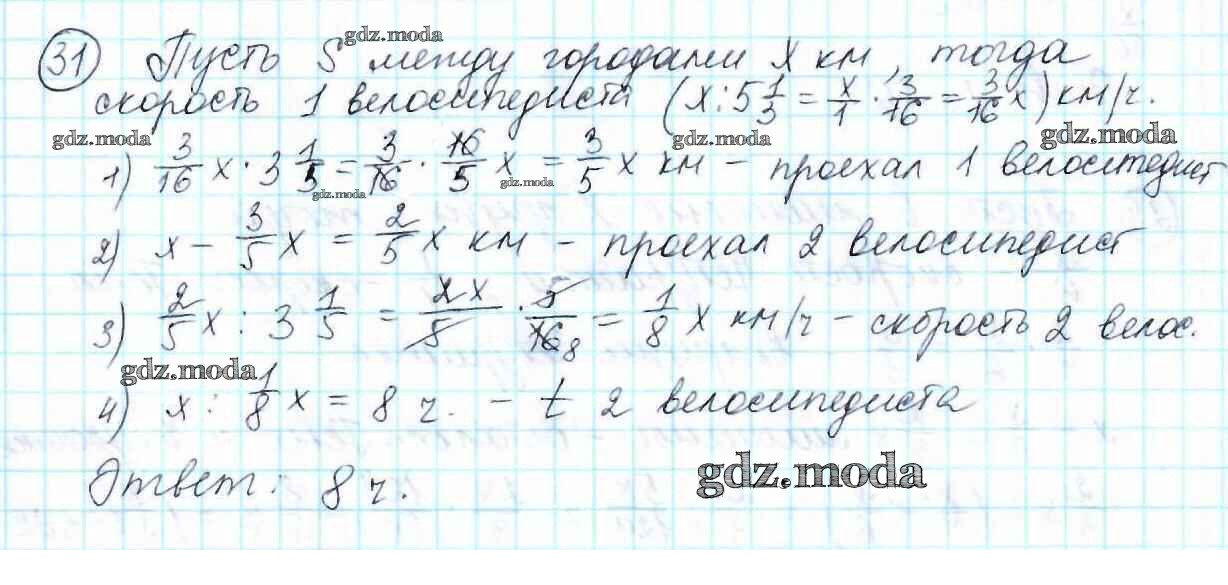 gdz.moda
31 Пусть S между городами x км, тогда
скорость 1 велосипедиста (x : 5 1/3 = x/1 · 3/16 = 3/16 x) км/ч.
gdz.moda gdz.moda
1) 3/16 x · 3 1/5 = 3/16 · 16/5 x = 3/5 x км – проехал 1 велосипедист
gdz.moda gdz.moda
2) x – 3/5 x = 2/5 x км – проехал 2 велосипедист
3) 2/5 x : 3 1/5 = 2x/5 · 5/16 8 = 1/8 x км/ч – скорость 2 велос.
gdz.moda
4) x : 1/8 x = 8 ч. – t 2 велосипедиста
Ответ: 8 ч.
gdz.moda